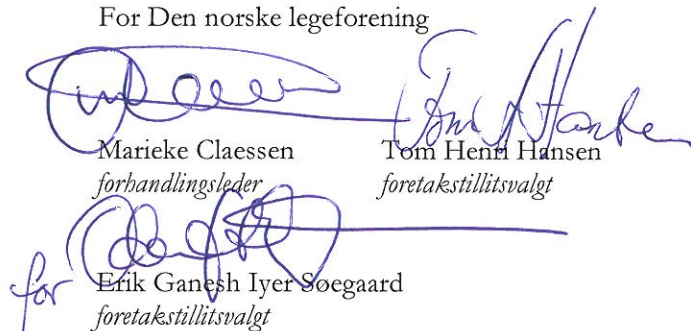 For Den norske legeforening
Marieke Claessen Tom Henri Hansen
forhandlingsleder foretakstillitsvalgt
for Erik Ganesh Iyer Søegaard
foretakstillitsvalgt